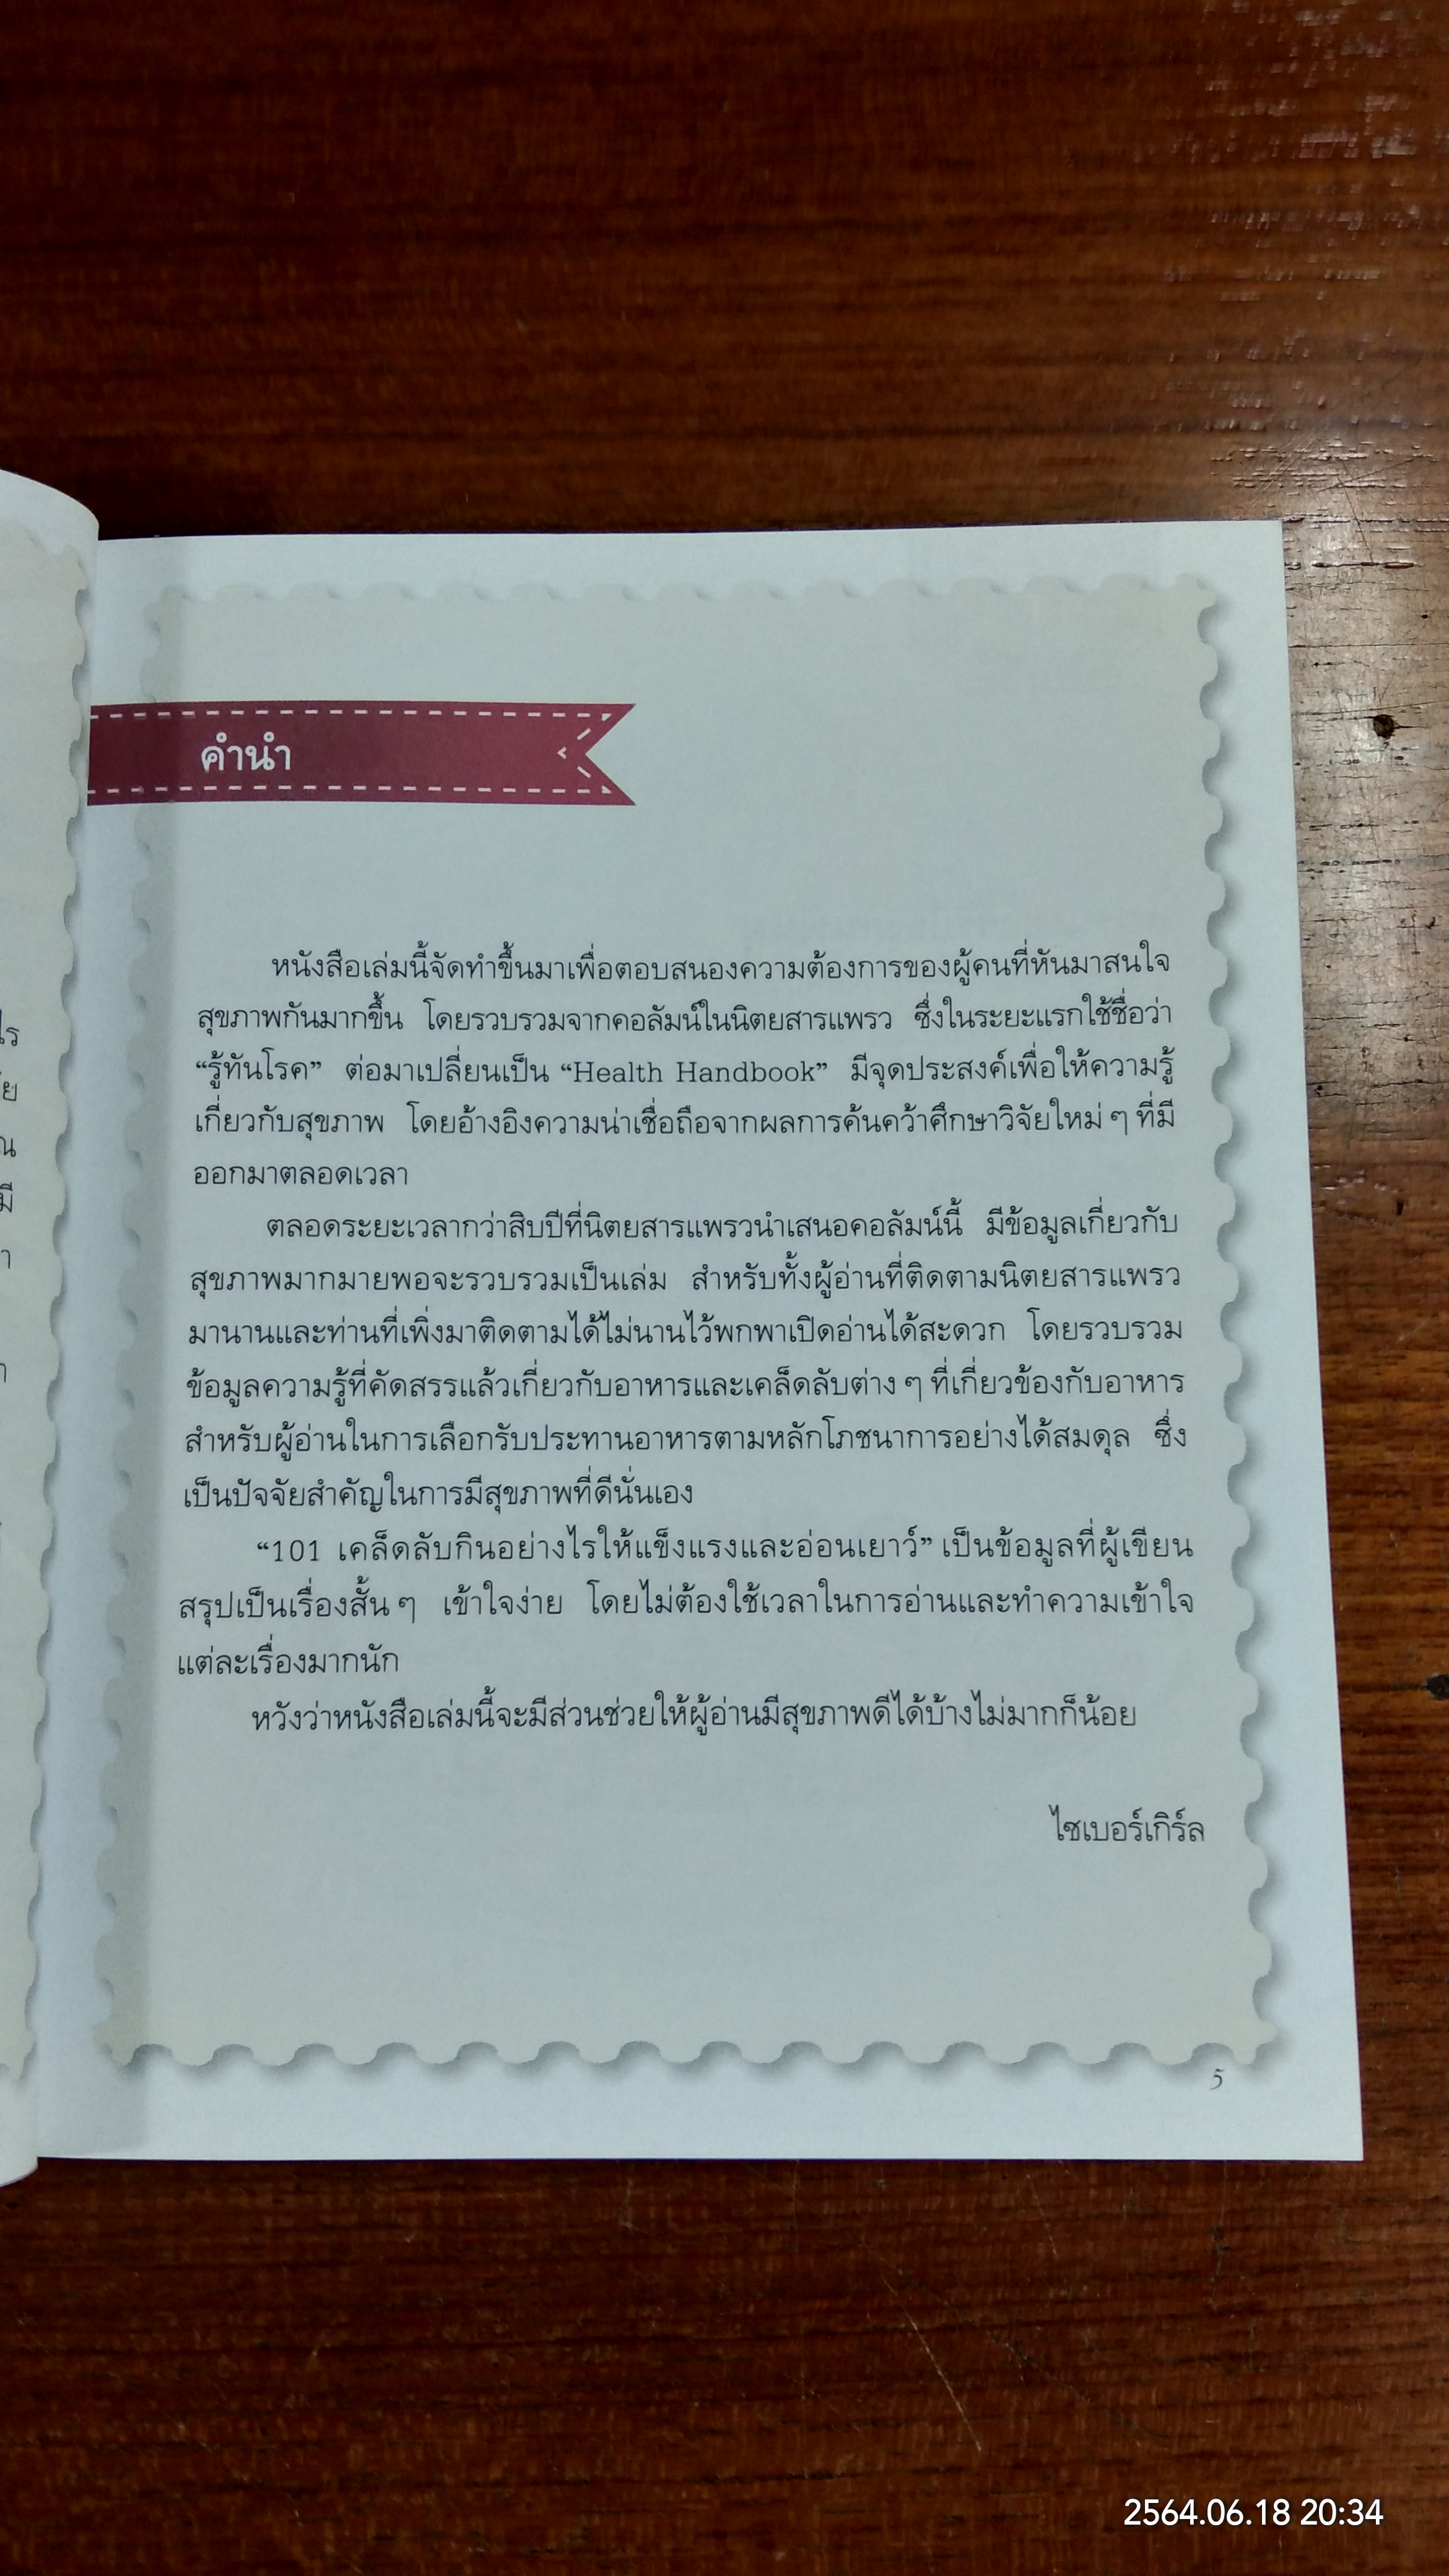 คำนำ
หนังสือเล่มนี้จัดทำขึ้นมาเพื่อตอบสนองความต้องการของผู้คนที่หันมาสนใจ
สุขภาพกันมากขึ้น โดยรวบรวมจากคอลัมน์ในนิตยสารแพรว ซึ่งในระยะแรกใช้ชื่อว่า
“รู้ทันโรค” ต่อมาเปลี่ยนเป็น “Health Handbook” มีจุดประสงค์เพื่อให้ความรู้
เกี่ยวกับสุขภาพ โดยอ้างอิงความน่าเชื่อถือจากผลการค้นคว้าศึกษาวิจัยใหม่ ๆ ที่มี
ออกมาตลอดเวลา
ตลอดระยะเวลากว่าสิบปีที่นิตยสารแพรวนำเสนอคอลัมน์นี้ มีข้อมูลเกี่ยวกับ
สุขภาพมากมายพอจะรวบรวมเป็นเล่ม สำหรับทั้งผู้อ่านที่ติดตามนิตยสารแพรว
มานานและท่านที่เพิ่งมาติดตามได้ไม่นานไว้พกพาเปิดอ่านได้สะดวก โดยรวบรวม
ข้อมูลความรู้ที่คัดสรรแล้วเกี่ยวกับอาหารและเคล็ดลับต่าง ๆ ที่เกี่ยวข้องกับอาหาร
สำหรับผู้อ่านในการเลือกรับประทานอาหารตามหลักโภชนาการอย่างได้สมดุล ซึ่ง
เป็นปัจจัยสำคัญในการมีสุขภาพที่ดีนั่นเอง
“101 เคล็ดลับกินอย่างไรให้แข็งแรงและอ่อนเยาว์” เป็นข้อมูลที่ผู้เขียน
สรุปเป็นเรื่องสั้น ๆ เข้าใจง่าย โดยไม่ต้องใช้เวลาในการอ่านและทำความเข้าใจ
แต่ละเรื่องมากนัก
หวังว่าหนังสือเล่มนี้จะมีส่วนช่วยให้ผู้อ่านมีสุขภาพดีได้บ้างไม่มากก็น้อย
ไซเบอร์เกิร์ล
5
2564.06.18 20:34